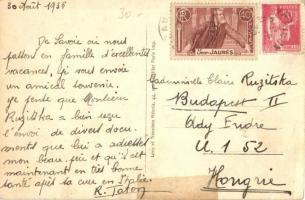 30 Août 1936
De Savoie où nous
passons en famille d'excellentes
vacances, je vous envoie
un amical souvenir.
je pense que Monsieur
Ruzitska a bien reçu
l'envoi de divers docu
ments que lui a adressé
mon beau-père et qu'il est
maintenant en très bonne
santé après sa cure en Italie.
R. Taton
POSTES
Jean JAURÈS
Mademoiselle Claire Ruzitska
Budapest II
Ady Endre
u. 152
Hongrie